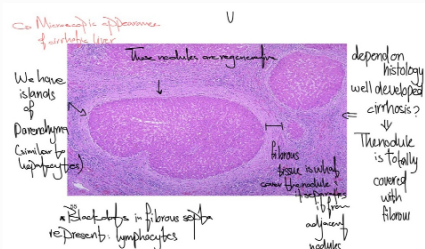 Microscopic appearance
of cirrhotic liver
These nodules are regenerative
We have
islands
of
Parenchyma
(similar to
hepatocytes)
depend on
histology
well developed
cirrhosis?
The nodule
is totally
covered
with
fibrous
fibrous
tissue is what
cover the nodule
separates
it from
adjacent
nodule
Black dots in fibrous septa
represent: lymphocytes